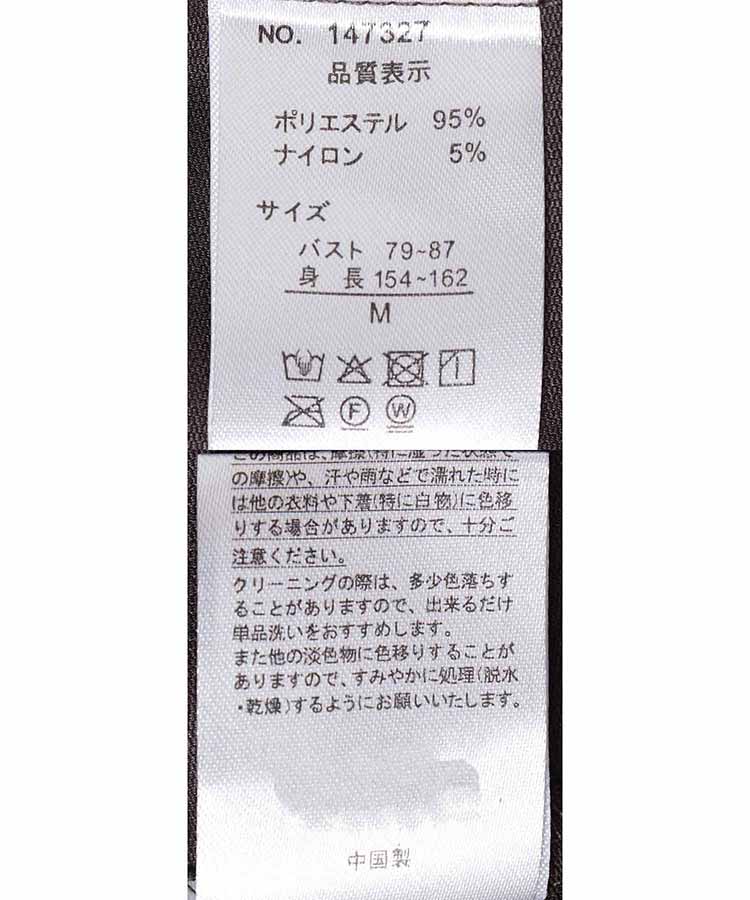 NO. 147327
品質表示
ポリエステル 95%
ナイロン 5%
サイズ
バスト 79~87
身長 154~162
M
F W
この商品は、摩擦(特に湿った状態で
の摩擦)や、汗や雨などで濡れた時に
は他の衣料や下着(特に白物)に色移
りする場合がありますので、十分ご
注意ください。
クリーニングの際は、多少色落ちす
ることがありますので、出来るだけ
単品洗いをおすすめします。
また他の淡色物に色移りすることが
ありますので、すみやかに処理(脱水
・乾燥)するようにお願いいたします。
中国製